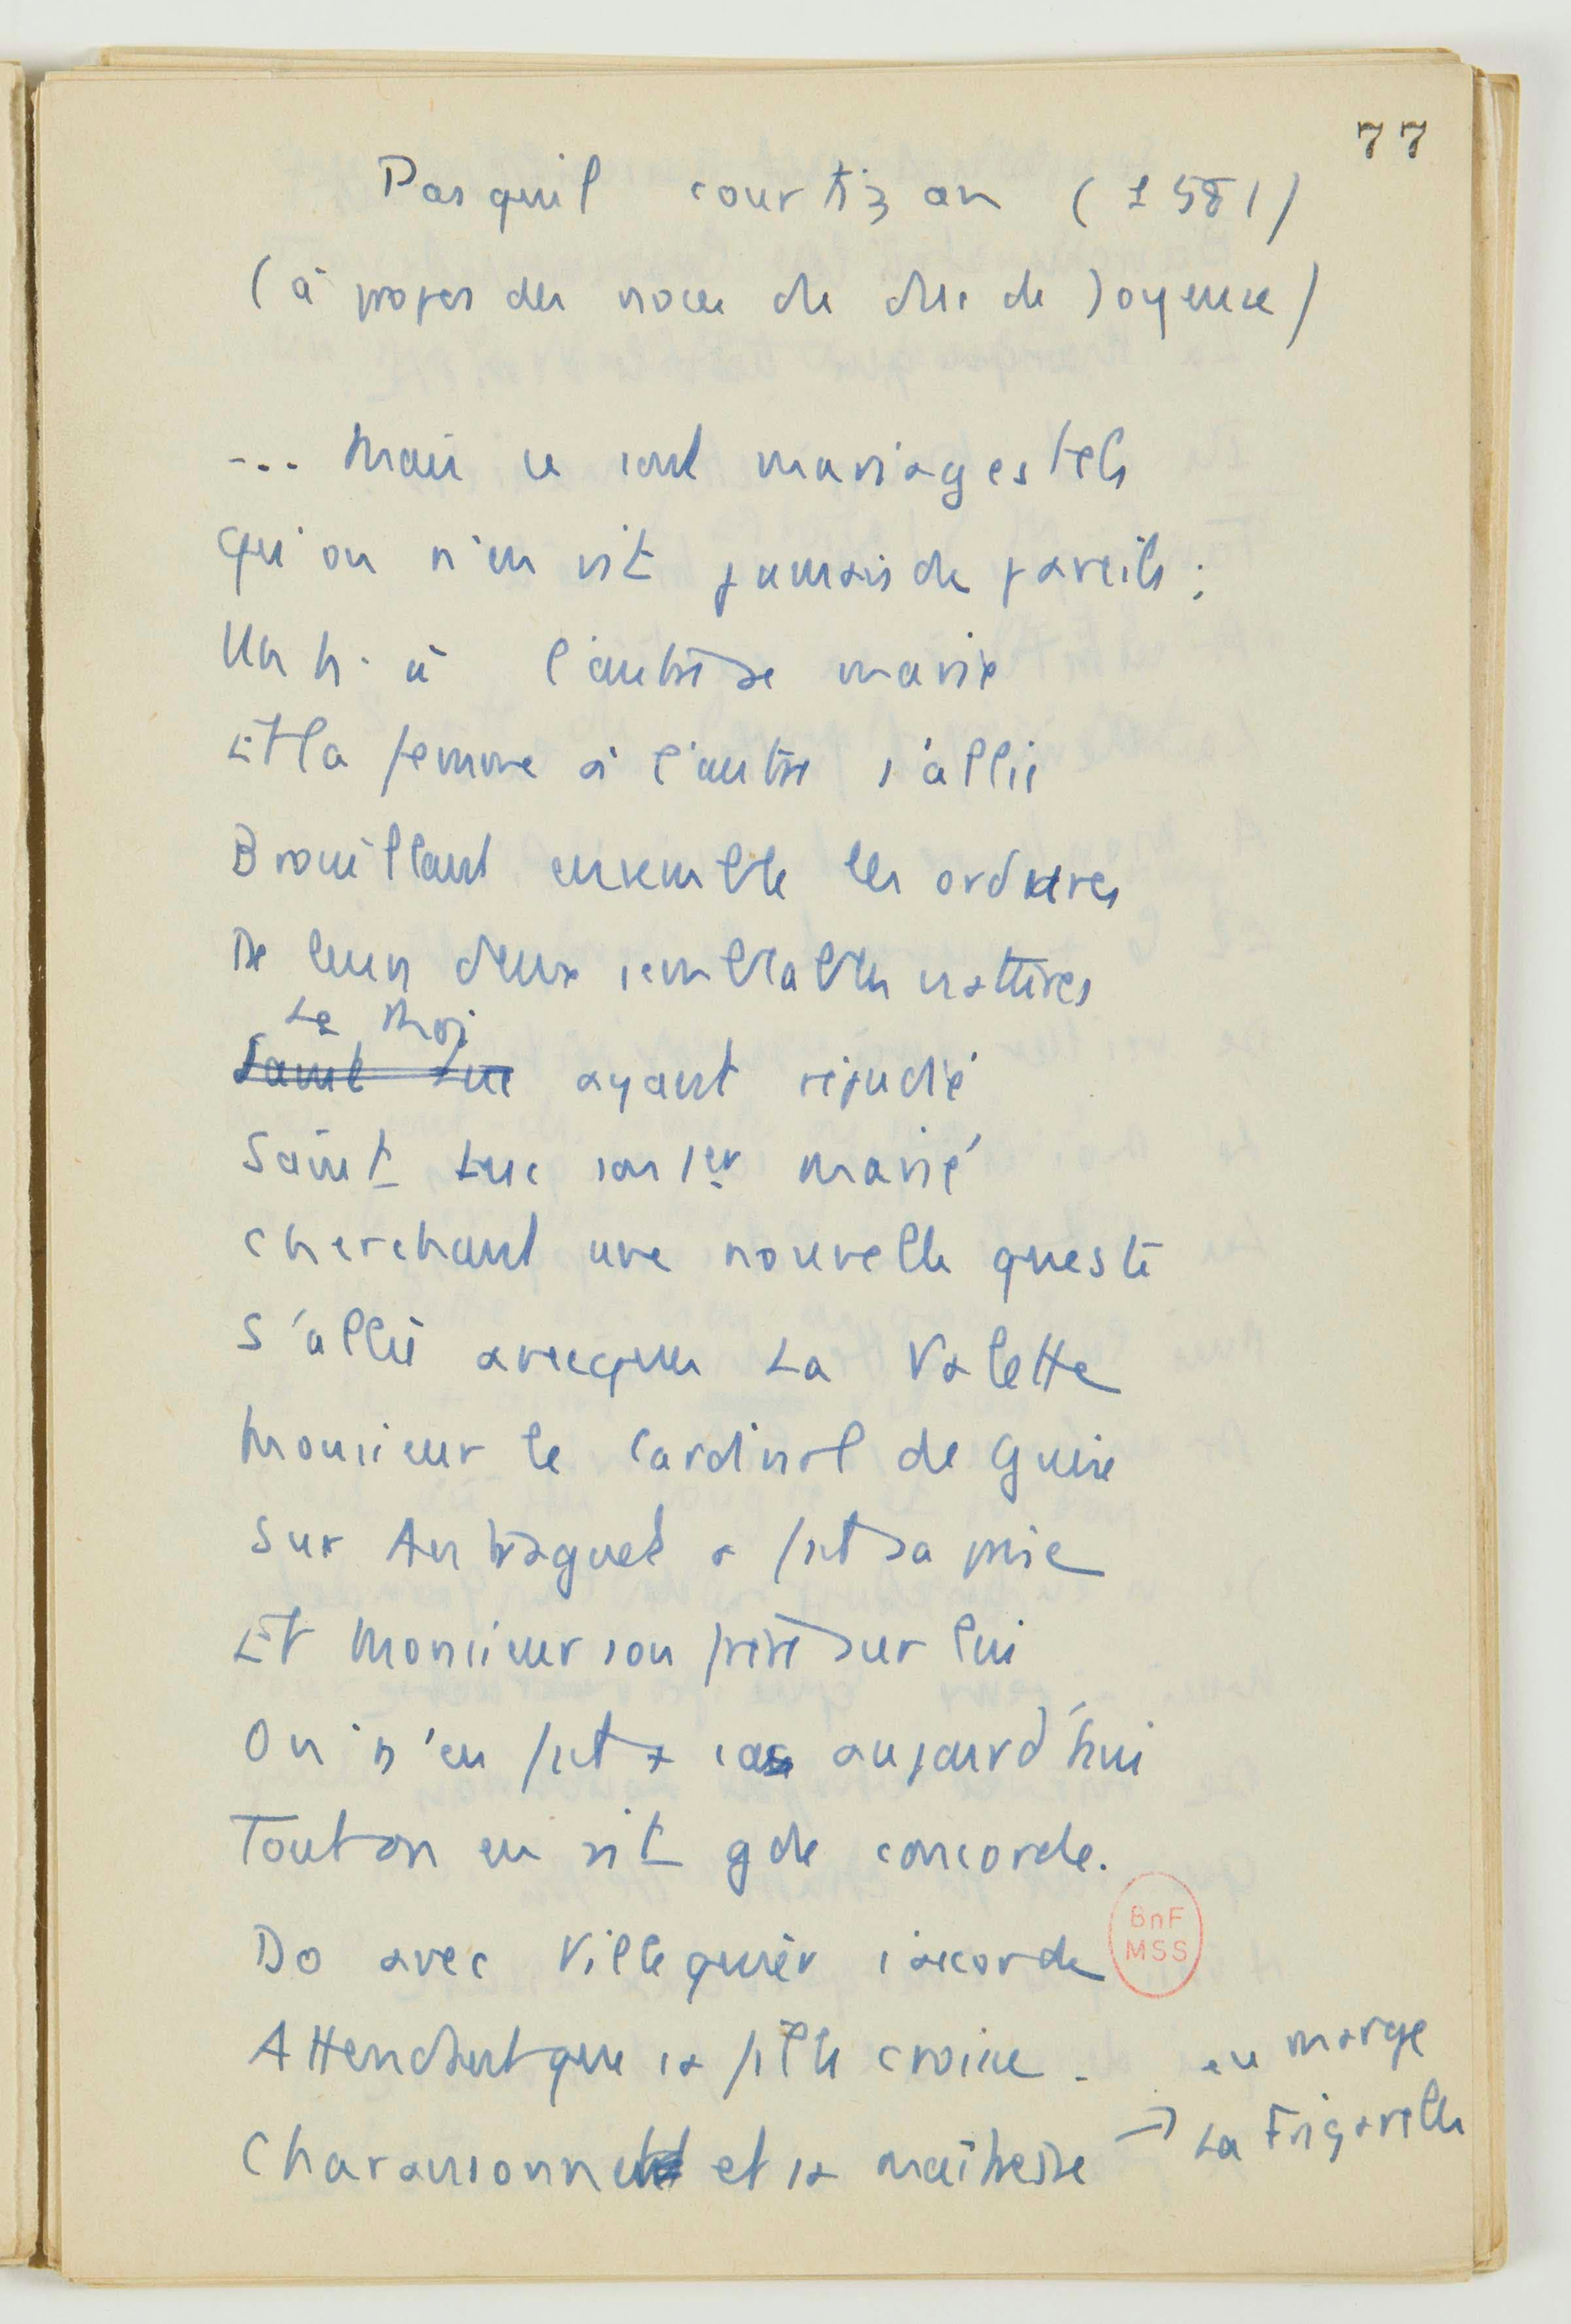 77
Pasquil courtizan (1581)
(à propos des noces du duc de Joyeuse)
... Mais ce sont mariages tels
Qu'on n'en vit jamais de pareils :
Un h. à l'autre se marie
Et la femme à l'autre s'allie
Brouillant ensemble les ordures
De leurs deux semblables natures
Le Roi
Saint Luc ayant répudié
Saint Luc son 1er marié
Cherchant une nouvelle queste
S'allie avecques La Valette
Monsieur le Cardinal de Guise
Sur Antraguet a fait sa prise
Et Monsieur son frère sur lui
On n'en fait + cas aujourd'hui
Tout on en vit gde concorde.
Do avec Villequier s'acorde
Attendant que sa fille croisse.
Charansonnet et sa maîtresse → La Frigarelle
en marge
BnF
MSS